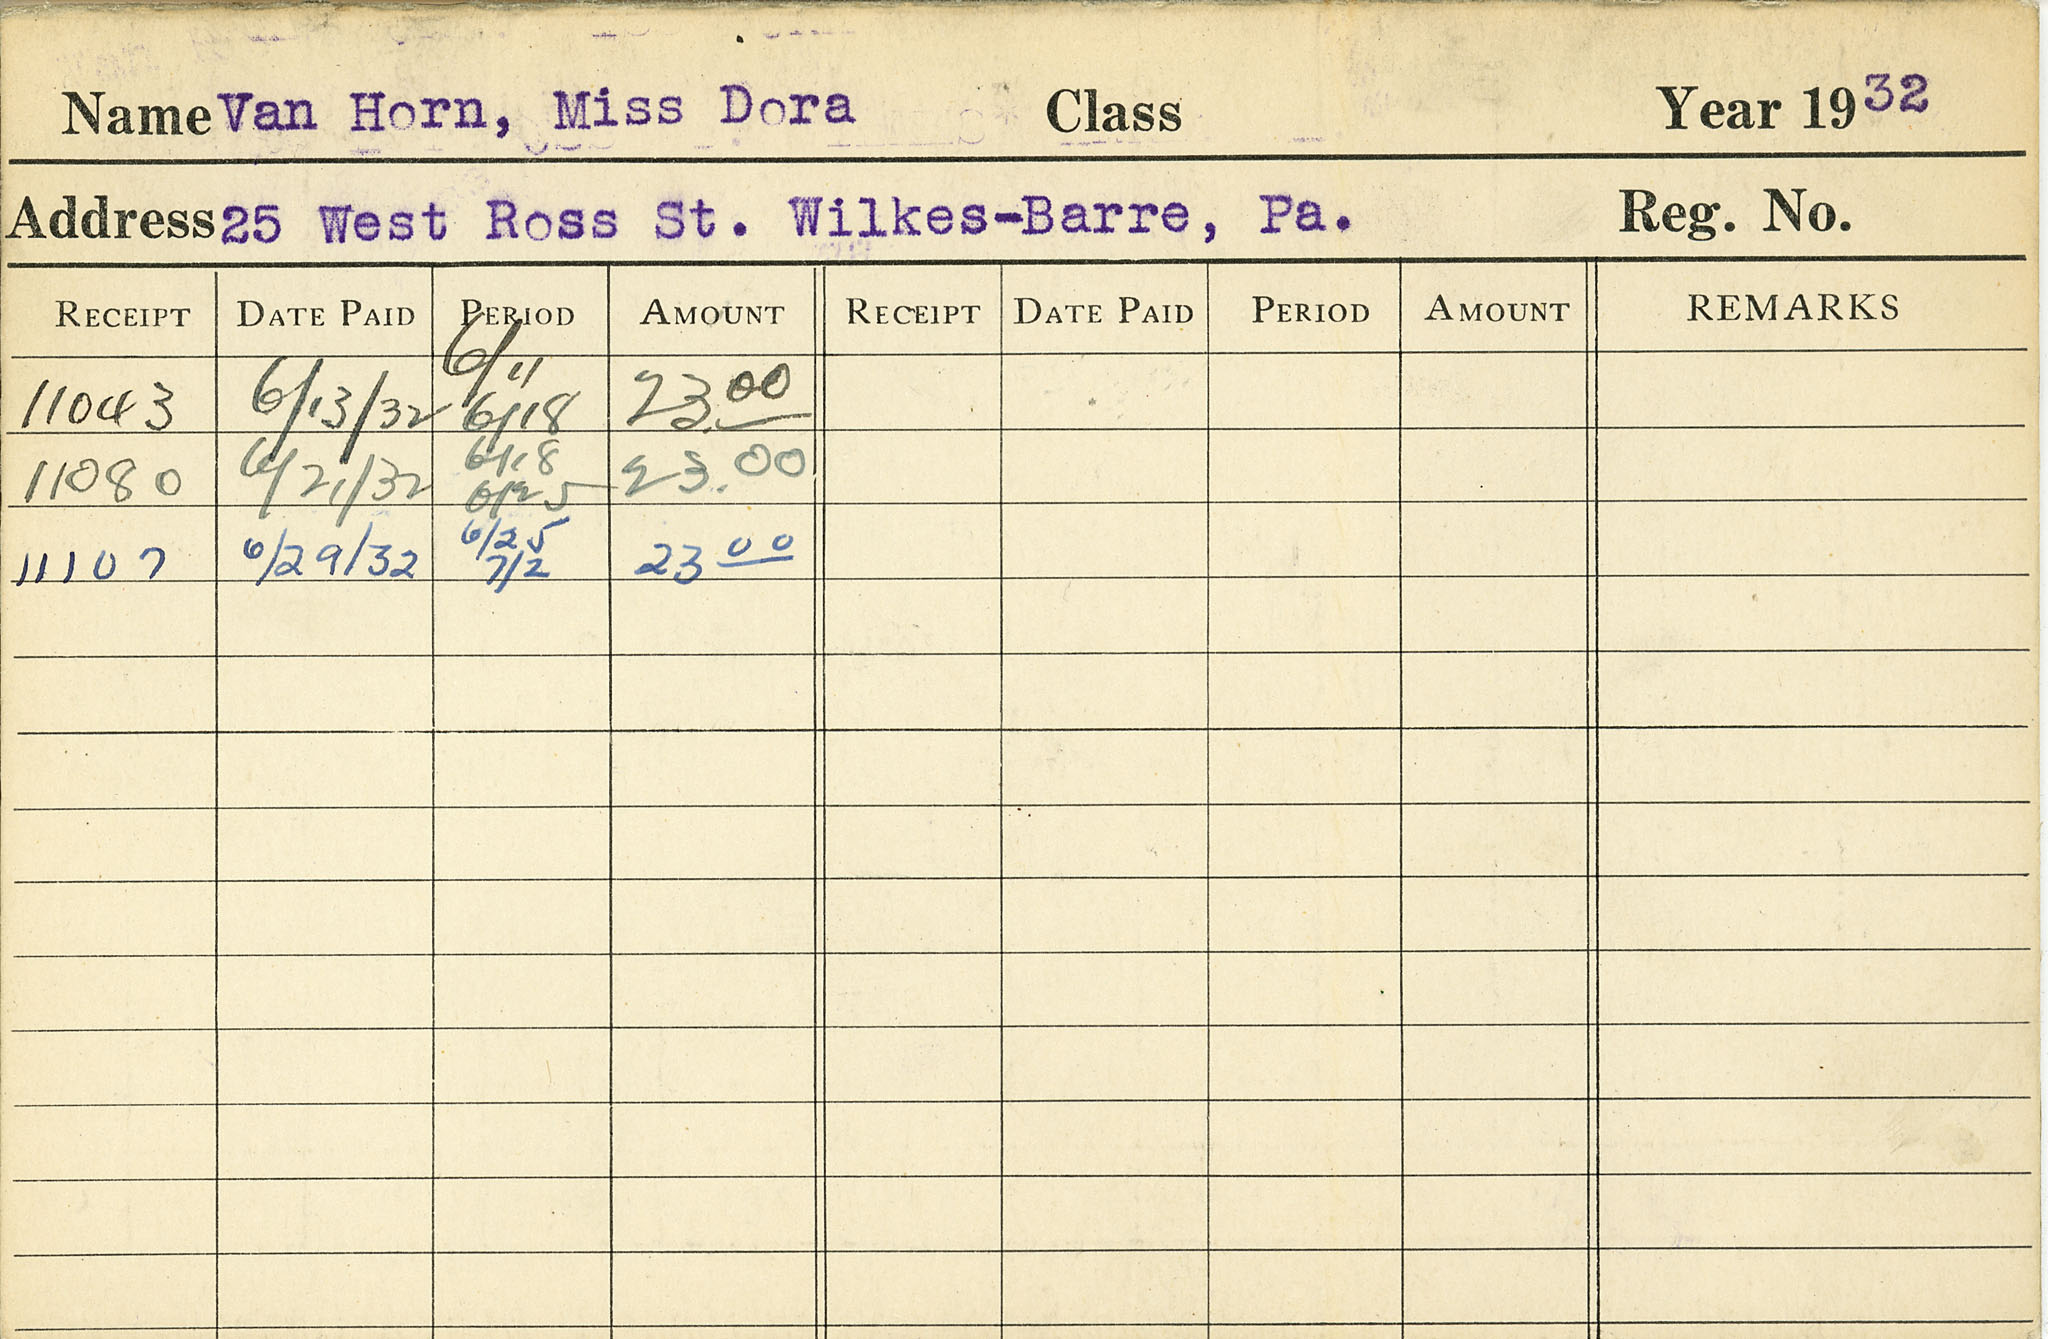 Name Van Horn, Miss Dora Class Year 1932
Address 25 West Ross St. Wilkes-Barre, Pa. Reg. No.
RECEIPT DATE PAID PERIOD AMOUNT RECEIPT DATE PAID PERIOD AMOUNT REMARKS
11043 6/13/32 6/11 6/18 23.00
11080 6/21/32 6/18 6/25 23.00
11107 6/29/32 6/25 7/2 23 00